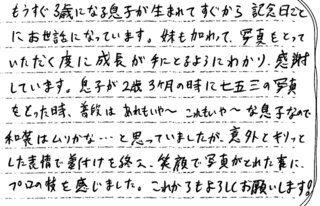 もうすぐ3歳になる息子が生まれてすぐから 記念日ごと
にお世話になっています。妹も加わって、写真をとって
いただく度に成長が手にとるようにわかり、感謝
しています。息子が2歳3ヶ月の時に七五三の写真
をとった時、普段は あれもいや〜 これもいや〜な息子なので
和装はムリかな…と思っていましたが、意外とキリッと
した表情で着付けを終え、笑顔で写真がとれた事に、
プロの技を感じました。これからもよろしくお願いします!